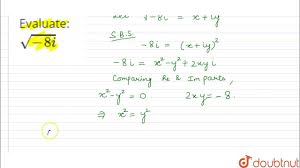 Evaluate:
√-8i
Let √-8i = x + iy
S.B.S.
-8i = (x + iy)²
-8i = x² - y² + 2xyi
Comparing Re & Im parts,
x² - y² = 0 2xy = -8
⇒ x² = y²
doubtnut